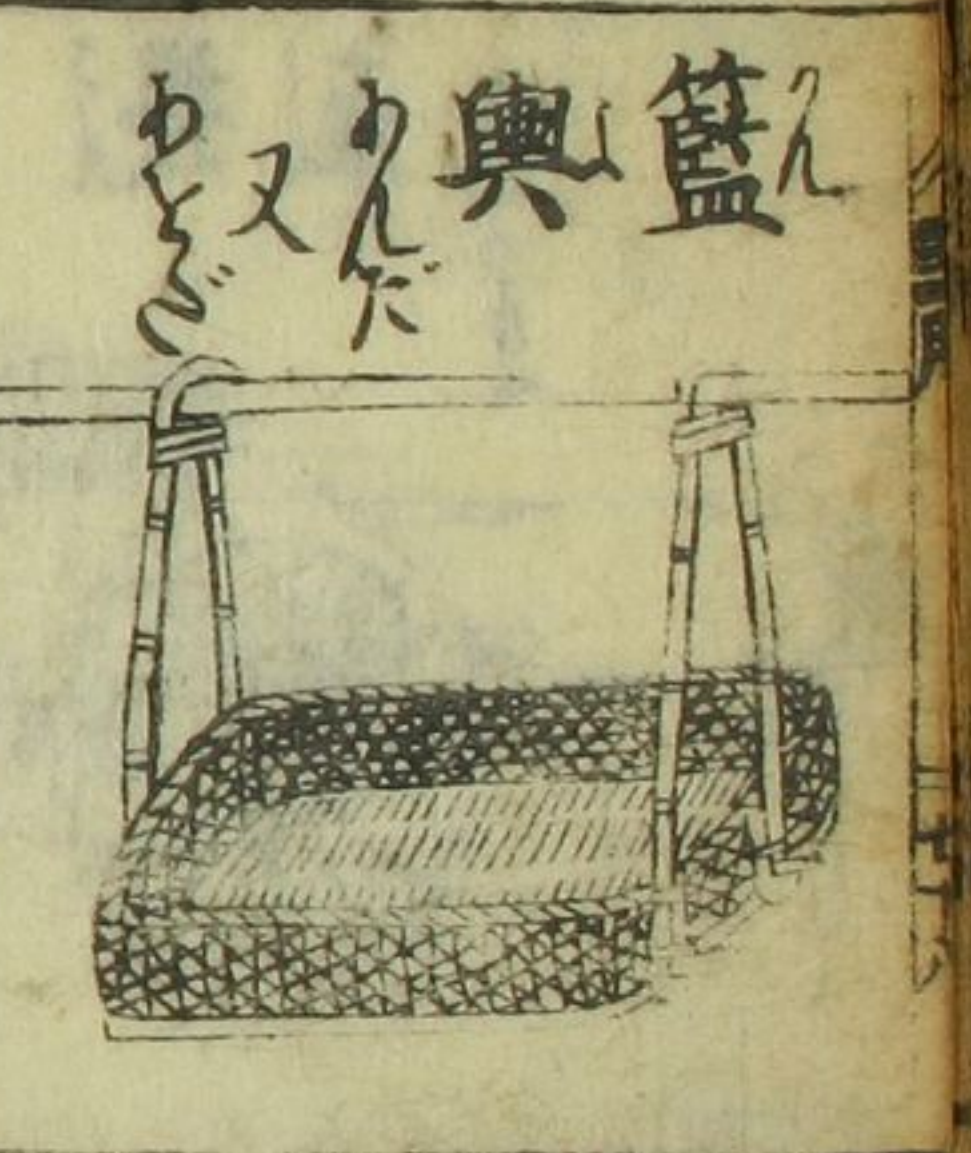 籃輿
らんよ
あんだ
又
あをだ